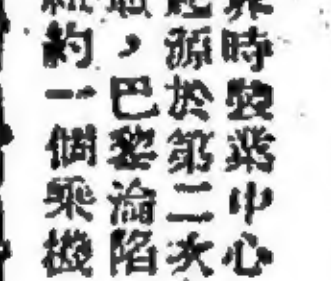 時裝業中心
起源於第二次
，巴黎淪陷
紐約一個乘機